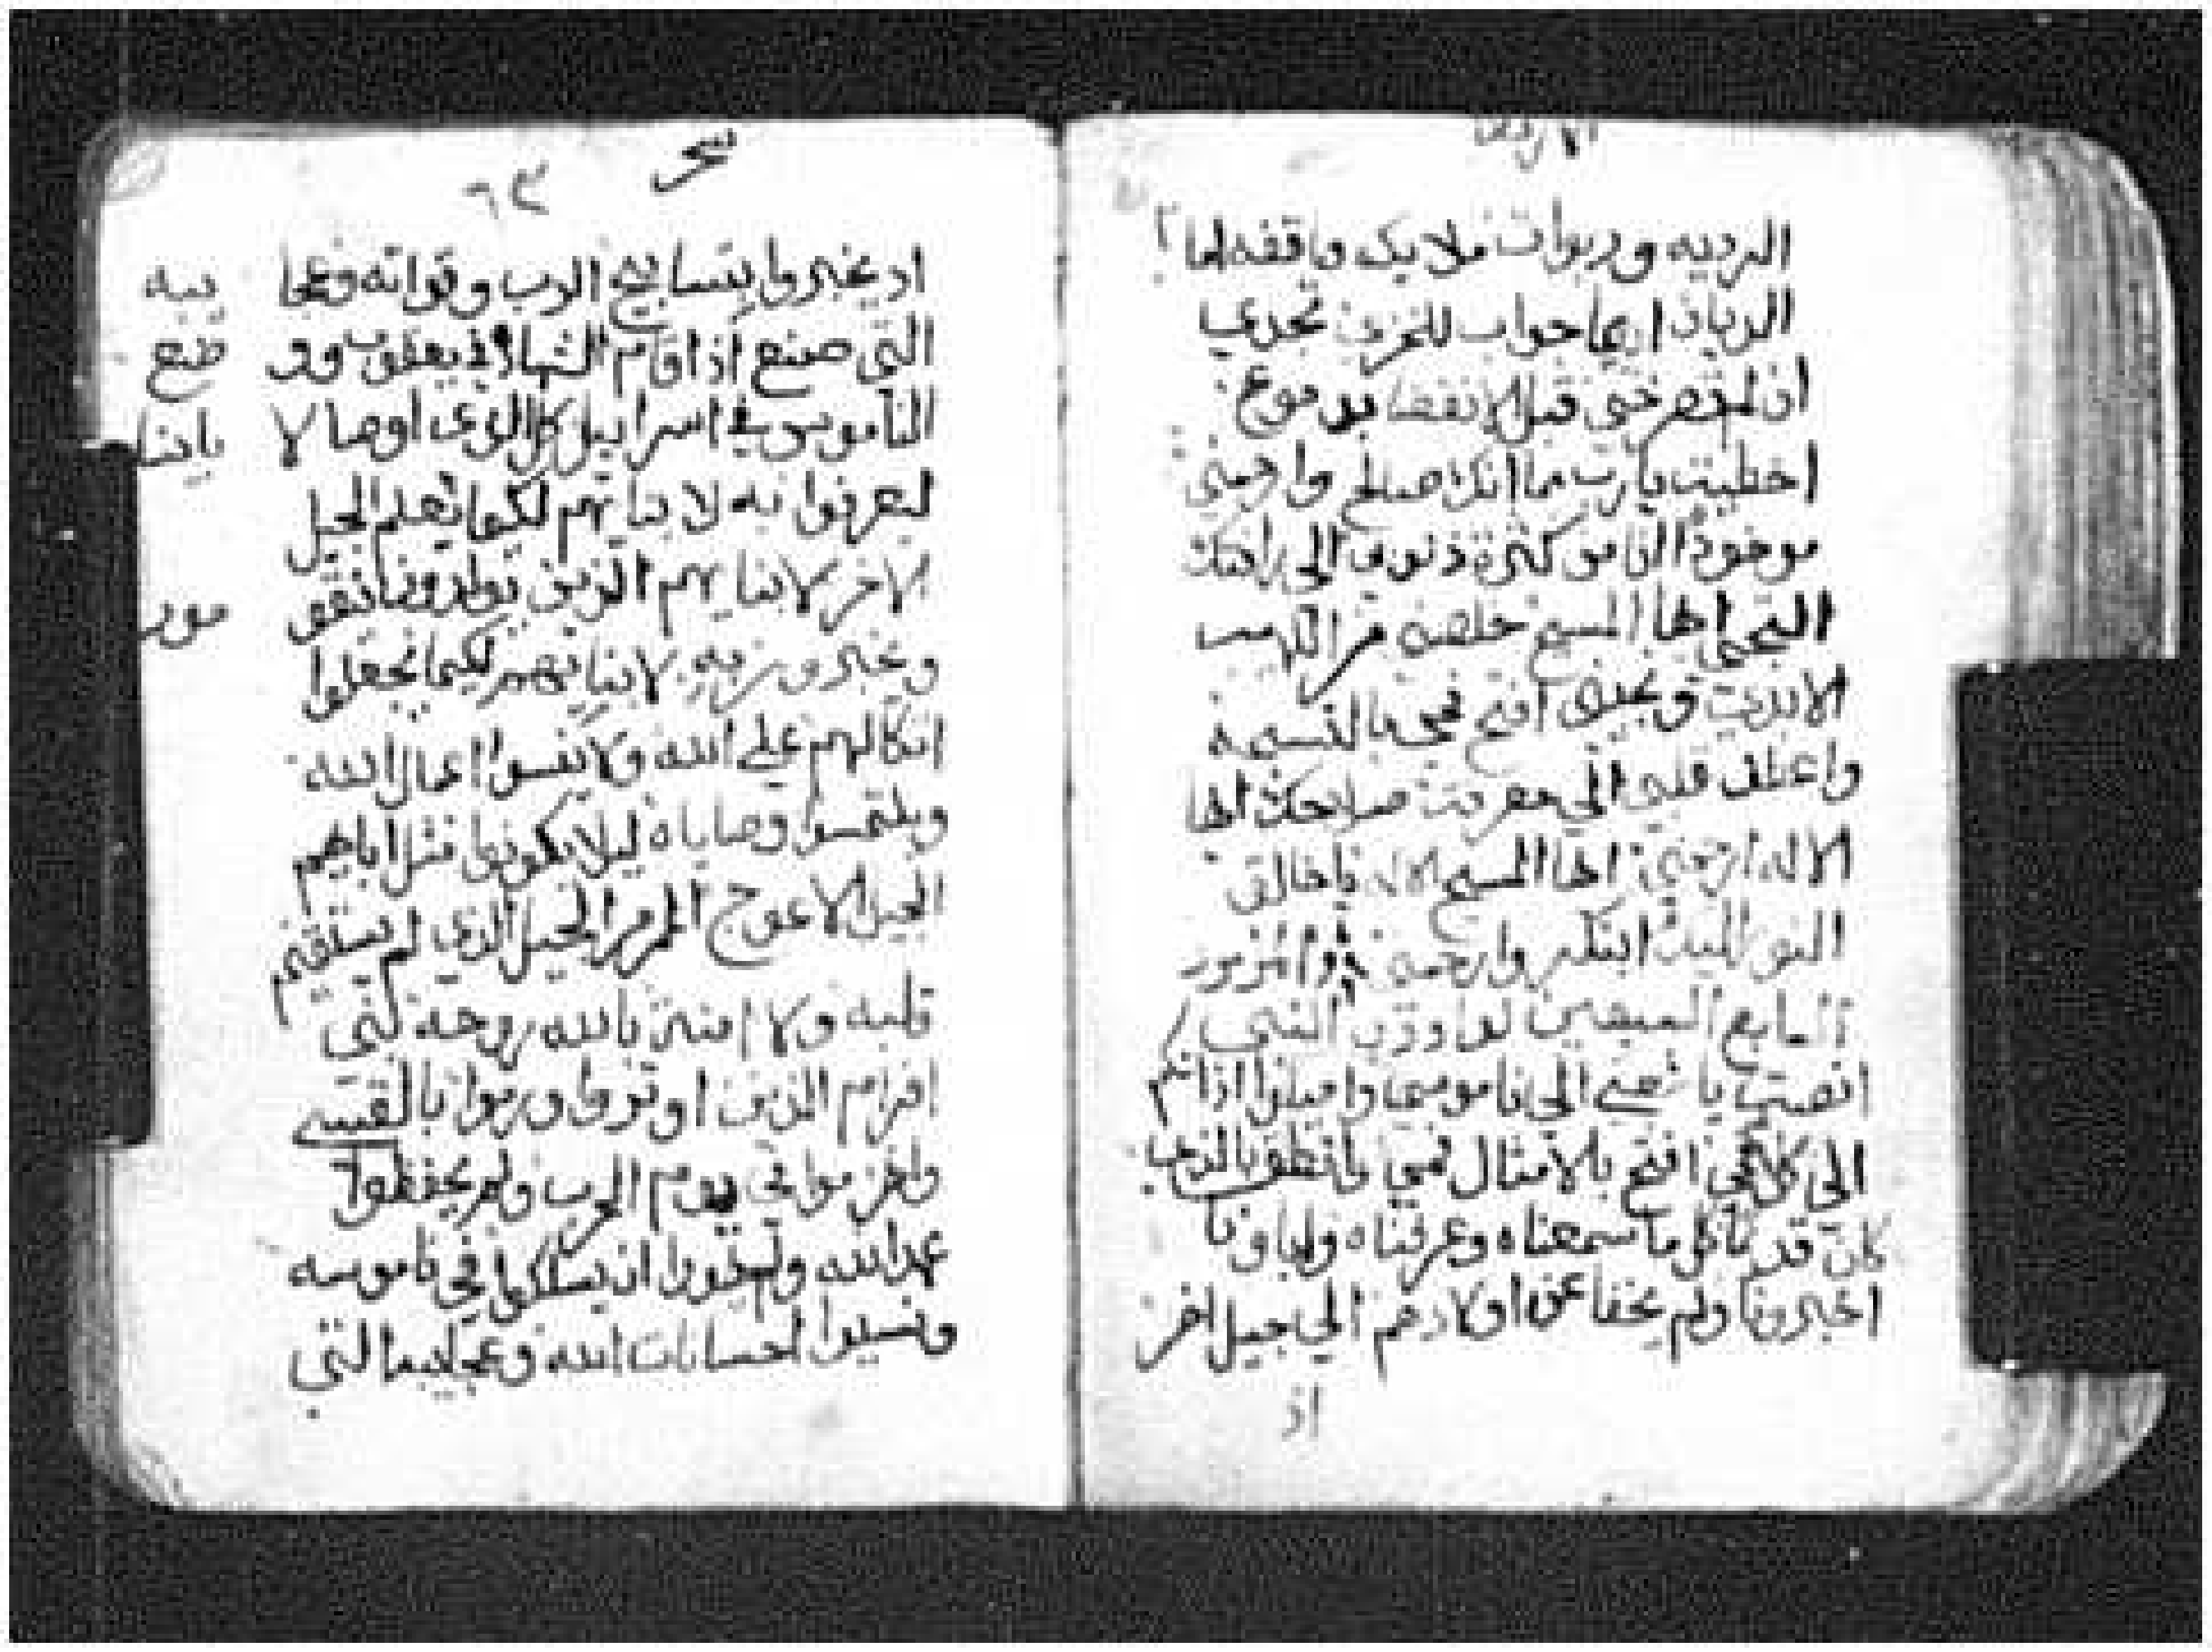 الرديه وربوات ملايكه واقفه اما
الديان ايما جواب للنزين تجدي
ان لم تصرخي قبل الانقضا بدموع
اخطيت يارب بما انك صالح وارحمني
موخوذا انا من كثرة ذنوبي الي رافتك
التجي ايها المسيح خلصني من اللهيب
الابدي ونجيني افتح فمي بالتسبحه
واعطف قلبي الي معرفت صلاحك ايها
الاله ارحمني ايها المسيح الاله ياخالق
النور وارحمه المزمور
السابع السبعين لداوود النبي
انصتي يا شعبي الي ناموسي واميلوا اذانكم
الي كل افتح بالامثال فمي وانطق بالذي
كان قديما كل ما سمعناه وعرفناه واباونا
اخبرونا ولم يخفا عن اولادهم الي جيل اخر
اذ
٦٣
اذ يخبروا بتسابيح الرب وقواته وعجا
يبه
التي صنع اذ اقام الشهاده في يعقوب ووـ
ضع
الناموس في اسراييل كالذي اوصا لا
باينا
ليعرفوا به لابنايهم لكيما يعلم الجيل
الاخر لابنايهم الذين يولدون
ويخبرون به لابنايهم لكيما يجعلوا
اتكالهم علي الله ولا ينسوا اعمال الله
ويلتمسوا وصاياه ليلا يكونوا مثل اباهم
الجيل الاعوج المرمر الجيل الذي لم يستقيم
قلبه ولا امنت بالله روحه بني
افرام الذين اوتروا ورموا بالقسي
وانهزموا في يوم الحرب ولم يحفظوا
عهد الله ولم يريدوا ان يسلكوا في ناموسه
ونسيوا احسانات الله وعجايبه التي